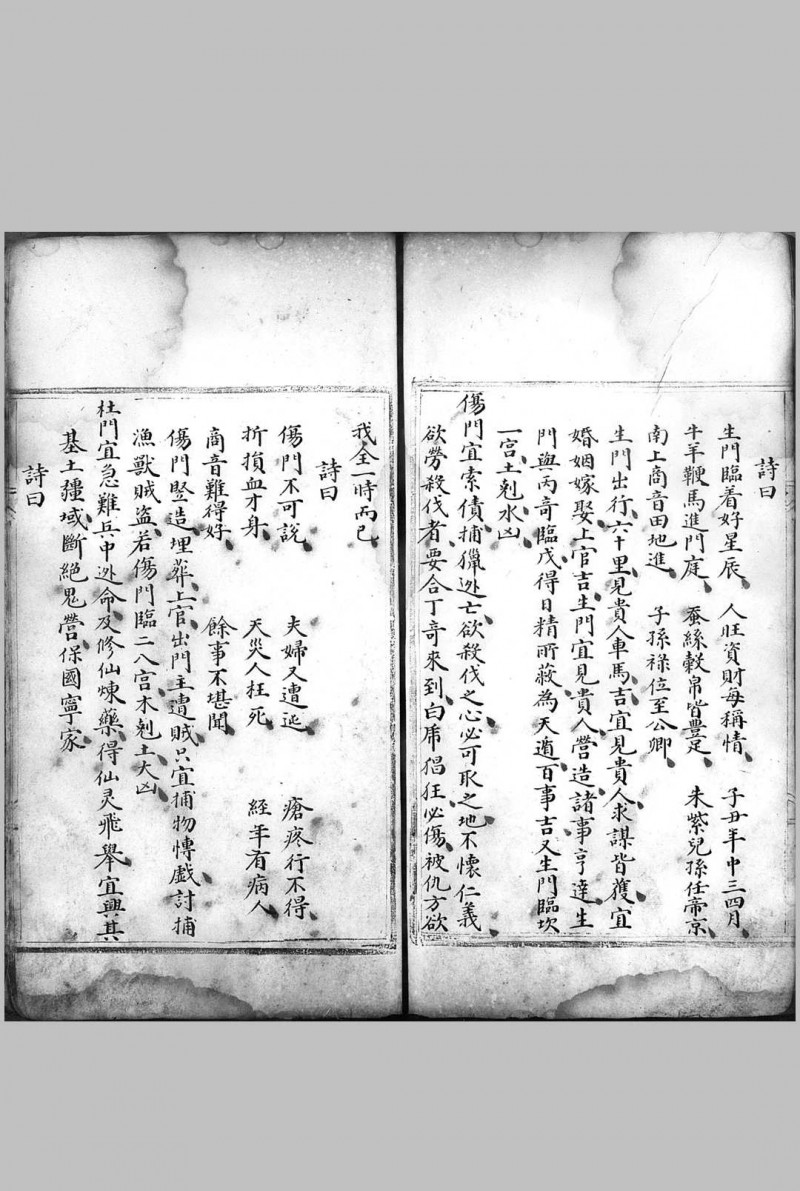 詩曰
生門臨着好星辰 人旺資財每稱情 子丑年中三四月
牛羊鞭馬進門庭 蚕絲穀帛皆豊足 朱紫兒孫任帝京
南上商音田地進 子孫祿位至公卿
生門出行六十里見貴人車馬吉宜見貴人求謀皆獲宜
婚姻嫁娶上官吉生門宜見貴人營造諸事亨達生
門與丙奇臨戊得日精所蔽為天遁百事吉又生門臨坎
一宮土剋水凶
傷門宜索債捕獵逃亡欲殺伐之心必可取之地不懷仁義
欲勞殺伐者要合丁奇來到白虎倡狂必傷被仇方欲
我全一時而已
詩曰
傷門不可說 夫婦又遭迍 瘡疼行不得
折損血才身 天災人枉死 經年有病人
商音難得好 餘事不堪聞
傷門竪造埋葬上官出門主遭賊只宜捕物慱戲討捕
漁獸賊盜若傷門臨二八宮木剋土大凶
杜門宜急難兵中逃命及修仙煉藥得仙灵飛舉宜興其
基土疆域斷絕鬼營保國寧家
詩曰